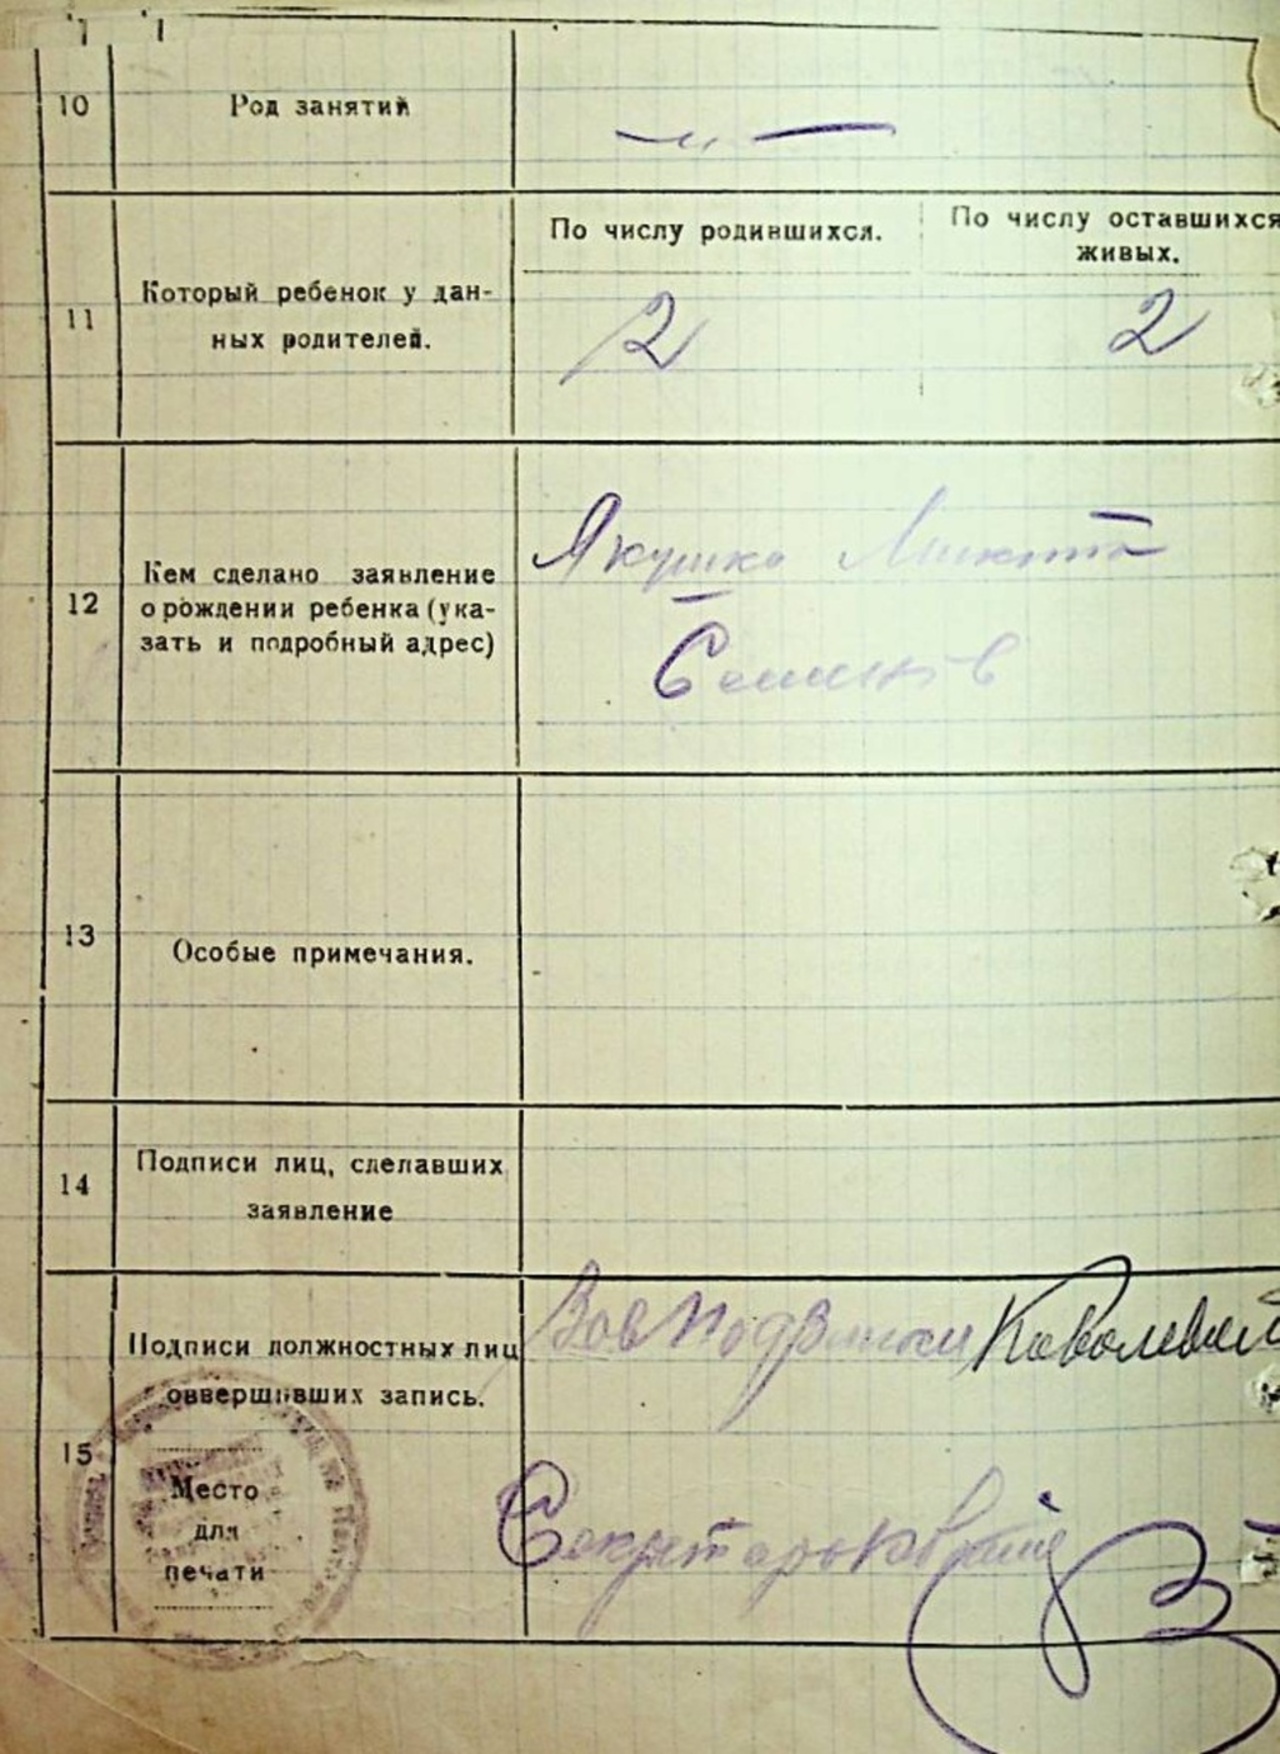 10
Род занятий
— „ —
11
Который ребенок у дан-
ных родителей.
По числу родившихся.
По числу оставшихся
живых.
2
2
12
Кем сделано заявление
о рождении ребенка (ука-
зать и подробный адрес)
Якушко Микита
13
Особые примечания.
14
Подписи лиц, сделавших
заявление
15
Подписи должностных лиц
оввершивших запись.
Место
для
печати
Секретарь